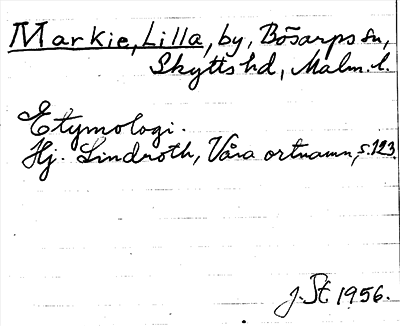 Markie, Lilla, by, Bösarps sn,
Skytts hd, Malm. l.
Etymologi.
Hj. Lindroth, Våra ortnamn, s. 123.
J. St 1956.